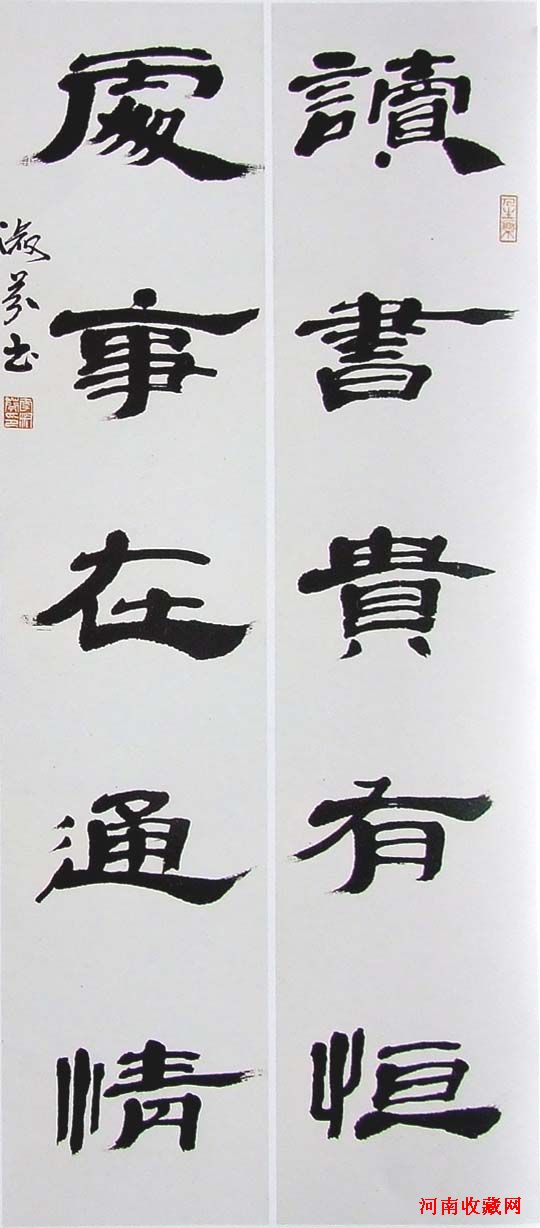 讀書貴有恒
處事在通情
淑芬书
河南收藏网